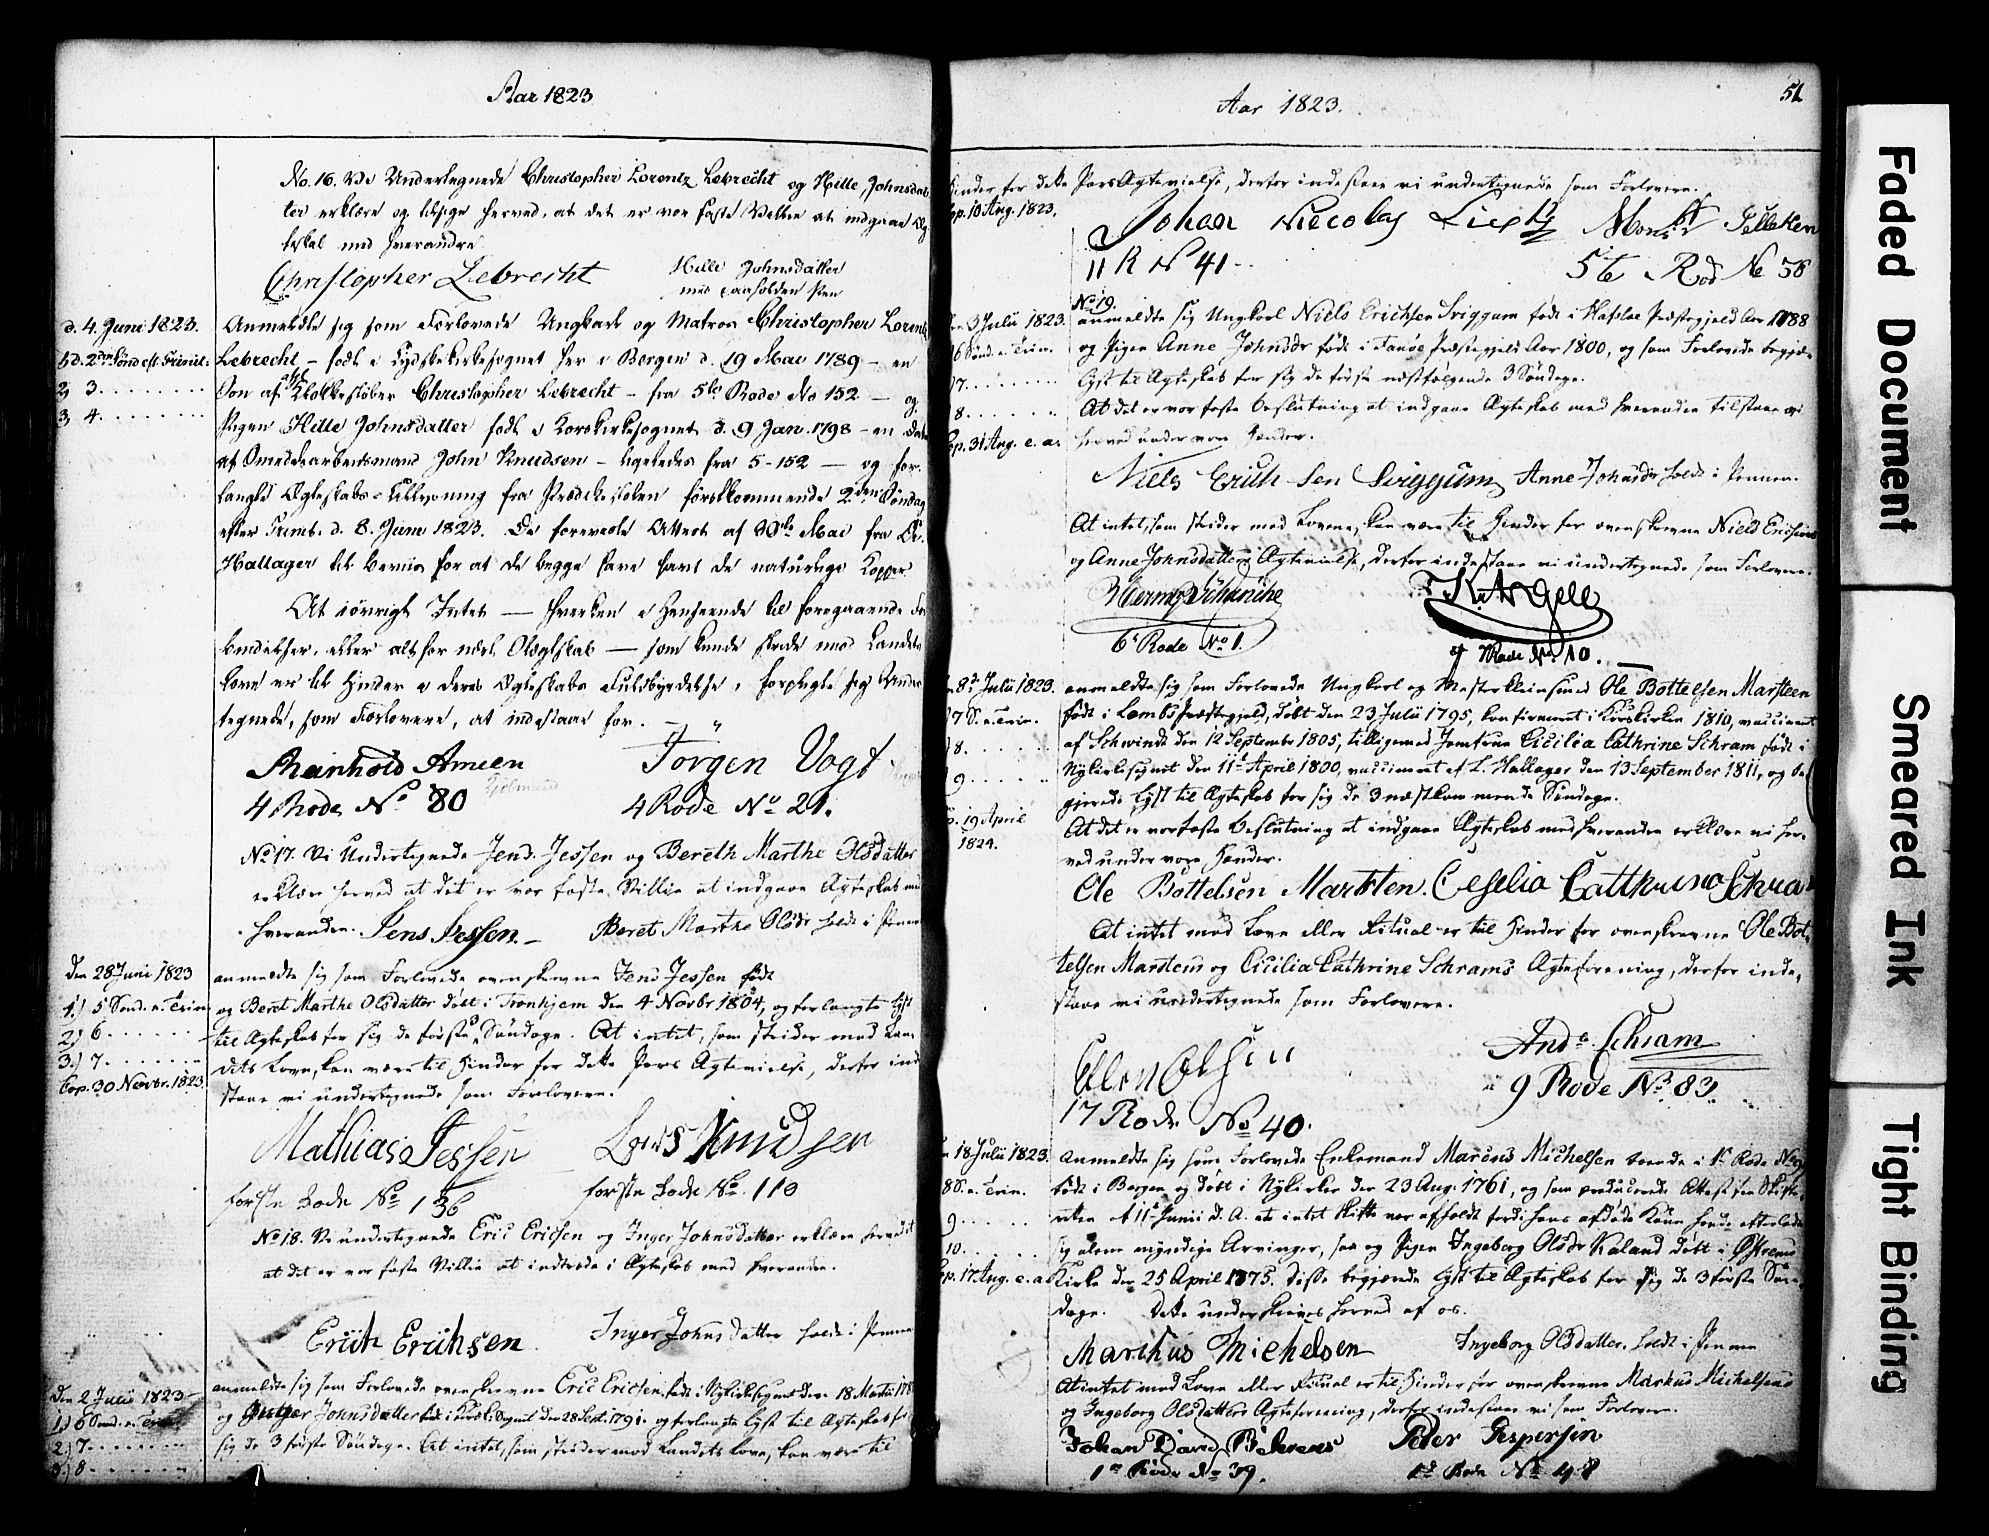 Aar 1823
No. 16. Vi Undertegnede Christopher Lorentz Lebrecht og Hille Johnsdat
ter erklære og tilsige herved, at det er vor faste Villie at indgaae Æg
teskab med hverandre
Christopher Lebrecht
Hille Johnsdatter
med paaholden Pen
d. 4. Juni 1823.
Anmeldte sig som Forlovede Ungkarl og Matros Christopher Lorentz
Lebrecht - født i Tydskekirkesognet her i Bergen d. 19 Mai 1789 - en
2) 3.
Søn af Klokkestøber Christopher Lebrecht - fra 5te Rode No 152 - og
3 4.
Pigen Hille Johnsdatter født i Korskirkesognet d. 9 Jan. 1798 - en Datt
af Smeddearbeidsmand John Knudsen - ligeledes fra 5-152 - og for
langte Ægteskabs-Tillysning fra Prædikestolen førstkommende 2den Søndag
efter Trinit. d. 8. Juni 1823. De foreviste Attest af 30te Mai fra Dr.
Hallager til beviis for at de begge have havt de naturlige Kopper
At iøvrigt Intet - hverken i Henseende til foregaaende For
bindelser, eller altfor nært Slægtskab - som kunde stride mod Landets
Love er til Hinder i deres Ægteskabs Fuldbyrdelse, forpligte sig Under
tegnede, som Forlovere, at indestaae for. -
Reinhold Ameen
Jørgen Vogt
4 Rode No 80
4 Rode No 21.
No 17. Vi Undertegnede Jens Jessen og Bereth Marthe Olsdatter
erklære herved at det er vor faste Villie at indgaae Ægteskab med
hverandre. Jens Jessen. - Beret Marthe Olsdr holdt i Pennen
Den 28 Juni 1823
anmeldte sig som Forlovede ovenskrevne Jens Jessen født
1.) 5 Sønd. e. Trin.
og Beret Marthe Olsdatter døbt i Tronhjem den 4 Novbr 1804, og forlangte Lyst
2.) 6.
til Ægteskab for sig de første 3 Søndage. At intet, som strider mod Lan
3.) 7.
dets Love, kan være til Hinder for dette Pars Ægtevielse, derfor inde
Cop. 30 Novbr. 1823.
staae vi undertegnede som Forlovere.
Mathias Jessen
Lars Knudsen
første Rode No 136
første Rode No. 110
No 18. Vi undertegnede Eric Ericsen og Inger Johnsdatter erklære herved
at det er vor faste Villie at indtræde i Ægteskab med hverandre.
Erich Erichsen
Inger Johnsdatter holdt i Pennen
Den 2 Julii 1823
anmeldte sig som Forlovede ovenskrevne Eric Ericsen født i Nykirkesognet den 18 Martii
1.) 6 Sønd. e. Trin.
og Inger Johnsdatter født i Kors Kirke Sognet den 28 Sept. 1791. og forlangte Lyst til Ægteskab for
2.) 7.
sig de 3 første Søndage. At intet, som strider mod Landets Love, kan være til
3.) 8.
Aar 1823.
51
Hinder for dette Pars Ægtevielse, derfor indestaae vi undertegnede som Forlovere.
Cop. 10 Aug. 1823.
Johan Nicolay
11 R No 41
5te Rod No 58
No 19.
Den 3 Julii 1823.
anmeldte sig Ungkarl Niels Erichsen Sviggum født i Hafsloe Præstegjeld Aar 1788
6 Sønd. e. Trin.
og Pigen Anne Johnsdr født i Fanøe Præstegjeld Aar 1800, og som Forlovede begjære
7.
Lyst til Ægteskab for sig de første næstfølgende 3 Søndage.
8.
At det er vor faste Beslutning at indgaae Ægteskab med hverandre tilstaae vi
Cop. 31 Aug. e. a.
herved under vore Hænder.
Niels Erich sen Sviggum Anne Johnsdr holdt i Pennen.
At intet, som strider med Lovene, kan være til Hinder for ovenskrevne Niels Erichsens
og Anne Johnsdatters Ægtevielse, derfor indestaae vi undertegnede som Forlovere.
6te Rode No 1.
Rode No 10.
Den 8de Julii 1823.
anmeldte sig som Forlovede Ungkarl og Mesterkleinsmed Ole Bottelsen Marsteen
7 S. e. Trin.
født i Lambs Præstegjeld, døbt den 23 Julii 1795, konfirmeret i Korskirken 1810, vaccineret
8.
af Schwindt den 12 September 1805, tilligemed Jomfrue Cicilia Cathrine Schram født i
9.
Nykirkesognet den 11te April 1800, vaccineret af L. Hallager den 13 September 1811, og be
gjerede Lyst til Ægteskab for sig de 3 næstkommende Søndage.
Cop. 19 April
1824.
At det er vor faste Beslutning at indgaae Ægteskab med hverandre erklære vi her
ved under vore Hænder.
Ole Bottelsen Marsten. Ceselia Catthrina Schra
At intet mod Love eller Ritual er til Hinder for ovenskrevne Ole Bot
telsen Marstens og Cicilia Cathrine Schrams Ægteforening, derfor inde
staae vi undertegnede som Forlovere.
Ellen Olsen
Ands Schram
17 Rode No 40.
9 Rode No 83.
Den 18 Julii 1823.
anmeldte sig som Forlovede Enkemand Marcus Michelsen boende i 1te Rode No
8 S. e. Trin.
født i Bergen og døbt i Nykirken den 23 Aug. 1761, og som producerede Attest fra Skifte
9.
retten af 11te Junii d. A. at intet Skifte var afholdt fordi hans afdøde Kone havde efterladt
10.
sig alene myndige Arvinger, saa og Pigen Ingeborg Olsdr Kaland døbt i
Cop. 17 Aug. e. a.
Kirke den 25 April 1775. Disse begjærede Lyst til Ægteskab for sig de 3 første Søn
dage. Dette underskrives herved af os.
Marchus Michelsen
Ingeborg Olsdatter. holdt i Pennen
At intet mod Love eller Ritual er til Hinder for ovenskrevne Markus Michelsens
og Ingeborg Olsdatters Ægteforening, derfor indestaae vi som Forlovere.
Johan David Behrens
Peder Jespersen
1te Rode No 39.
1te Rode No 48
Faded Document
Smeared Ink
Tight Binding